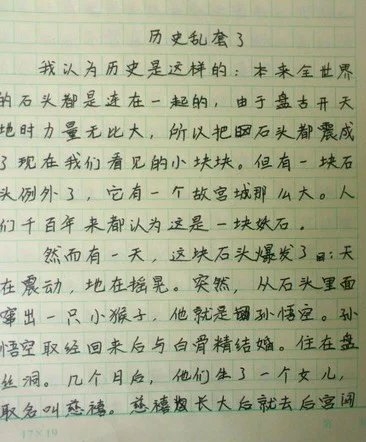 历史乱套了
我认为历史是这样的：本来全世界
的石头都是连在一起的，由于盘古开天
地时力量无比大，所以把石头都震成
了现在我们看见的小块块。但有一块石
头例外了，它有一个故宫城那么大。人
们千百年来都认为这是一块妖石。
然而有一天，这块石头爆发了：天
在震动，地在摇晃。突然，从石头里面
窜出一只小猴子，他就是孙悟空。孙
悟空取经回来后与白骨精结婚。住在盘
丝洞。几个月后，他们生了一个女儿，
取名叫慈禧。慈禧长大后就去后宫闯
17×19